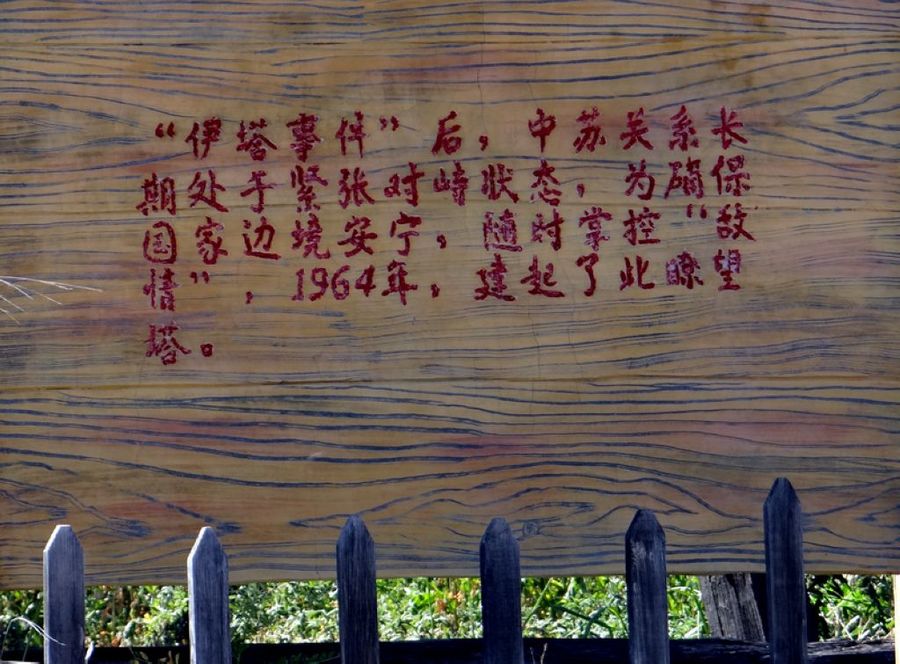 “伊塔事件”后，中苏关系长
期处于紧张对峙状态，为确保
国家边境安宁，随时掌控“敌
情”，1964年，建起了此瞭望
塔。